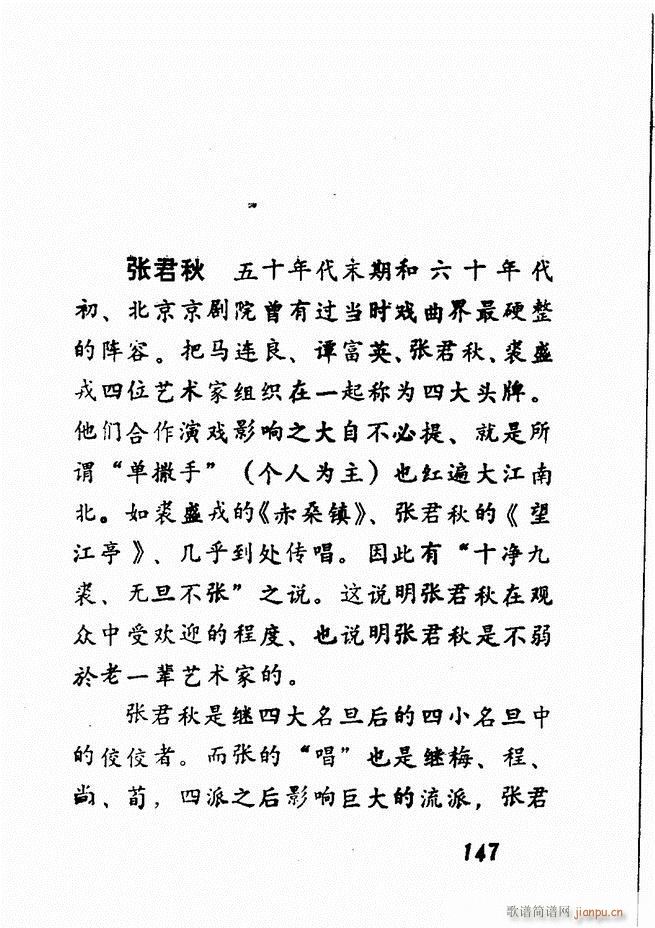 张君秋 五十年代末期和六十年代
初、北京京剧院曾有过当时戏曲界最硬整
的阵容。把马连良、谭富英、张君秋、裘盛
戎四位艺术家组织在一起称为四大头牌。
他们合作演戏影响之大自不必提、就是所
谓“单撒手”（个人为主）也红遍大江南
北。如裘盛戎的《赤桑镇》、张君秋的《望
江亭》、几乎到处传唱。因此有“十净九
裘、无旦不张”之说。这说明张君秋在观
众中受欢迎的程度、也说明张君秋是不弱
於老一辈艺术家的。
张君秋是继四大名旦后的四小名旦中
的佼佼者。而张的“唱”也是继梅、程、
尚、荀，四派之后影响巨大的流派，张君
147
歌谱简谱网 jianpu.cn